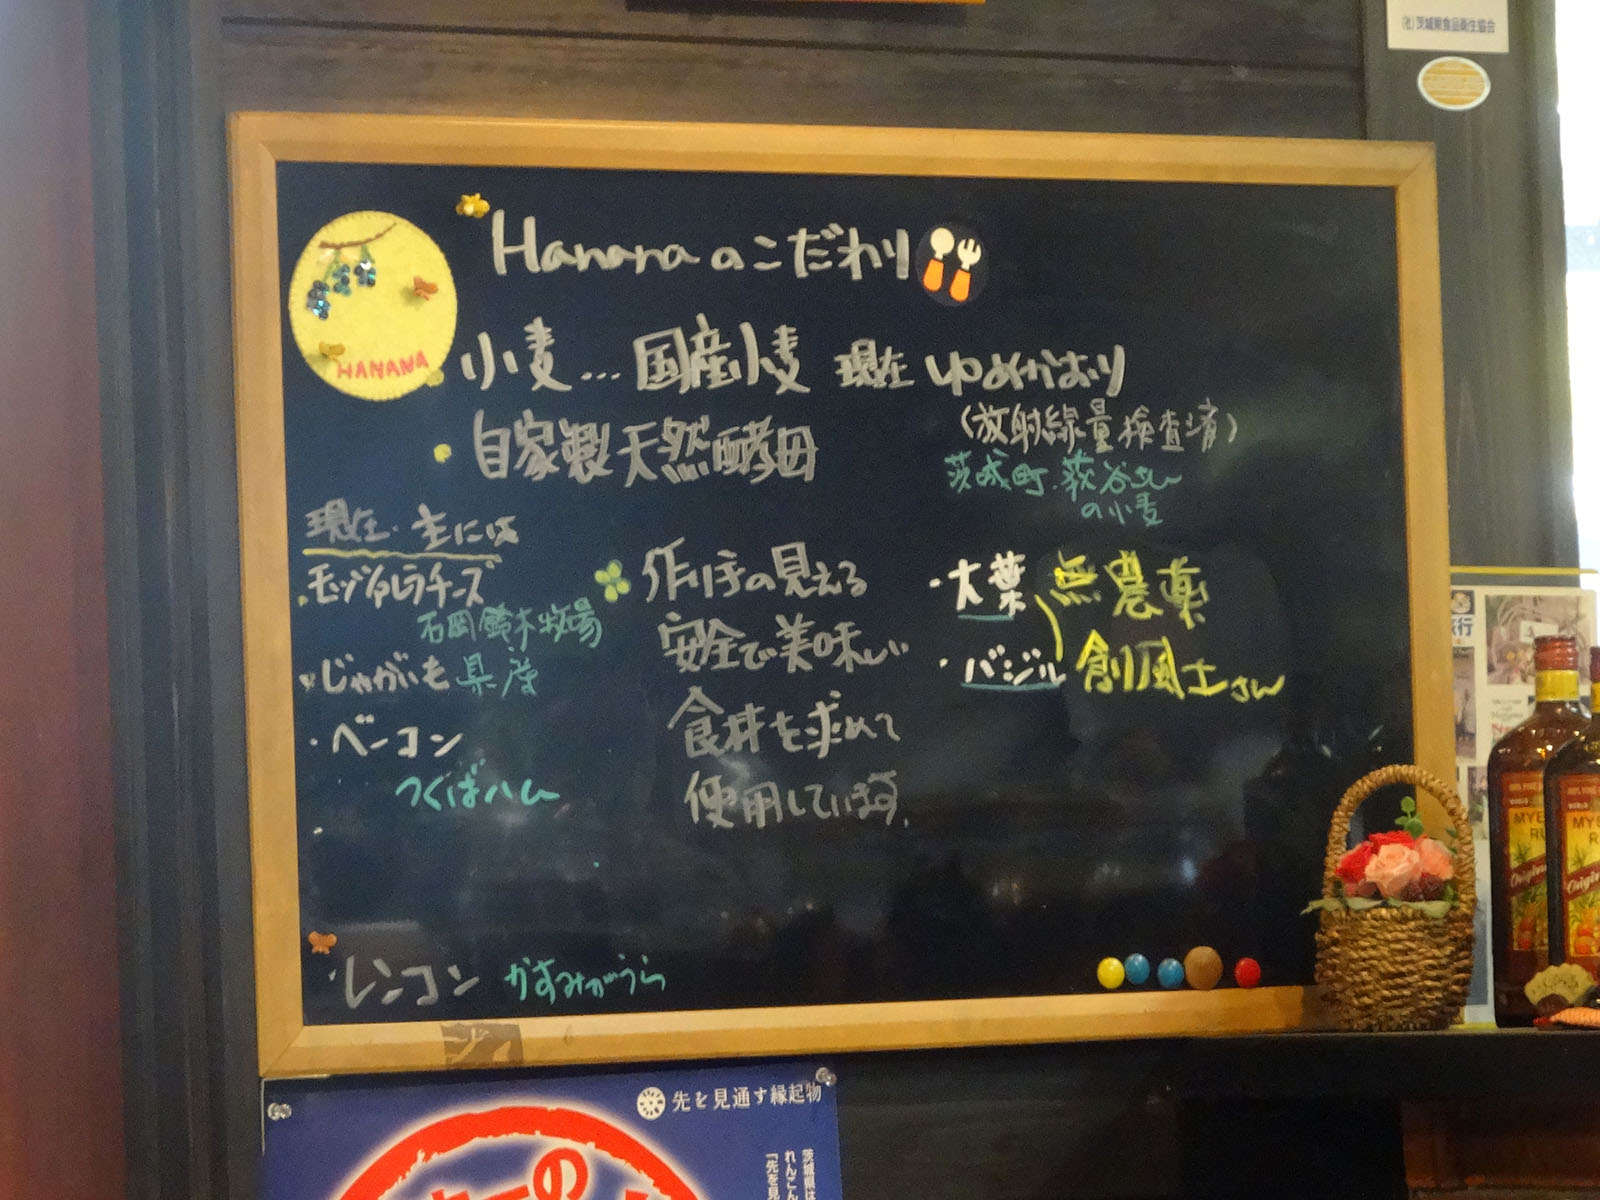 (社)茨城県食品衛生協会
Hananaのこだわり
HANANA
小麦…国産小麦 現在 ゆめかおり
(放射線量検査済)
自家製天然酵母
茨城町.萩谷さん
の小麦
現在.主には
モッツァレラチーズ
石岡鈴木牧場
・じゃがいも 県産
・ベーコン
つくばハム
・レンコン かすみがうら
作り手の見える
安全で美味しい
食材を求めて
使用しています.
・大葉 無農薬
・バジル 創風土さん
先を見通す縁起物
茨城県は
れんこん
「先を見
の
旅行
MYE
RU
Original
MYE
R
Origin